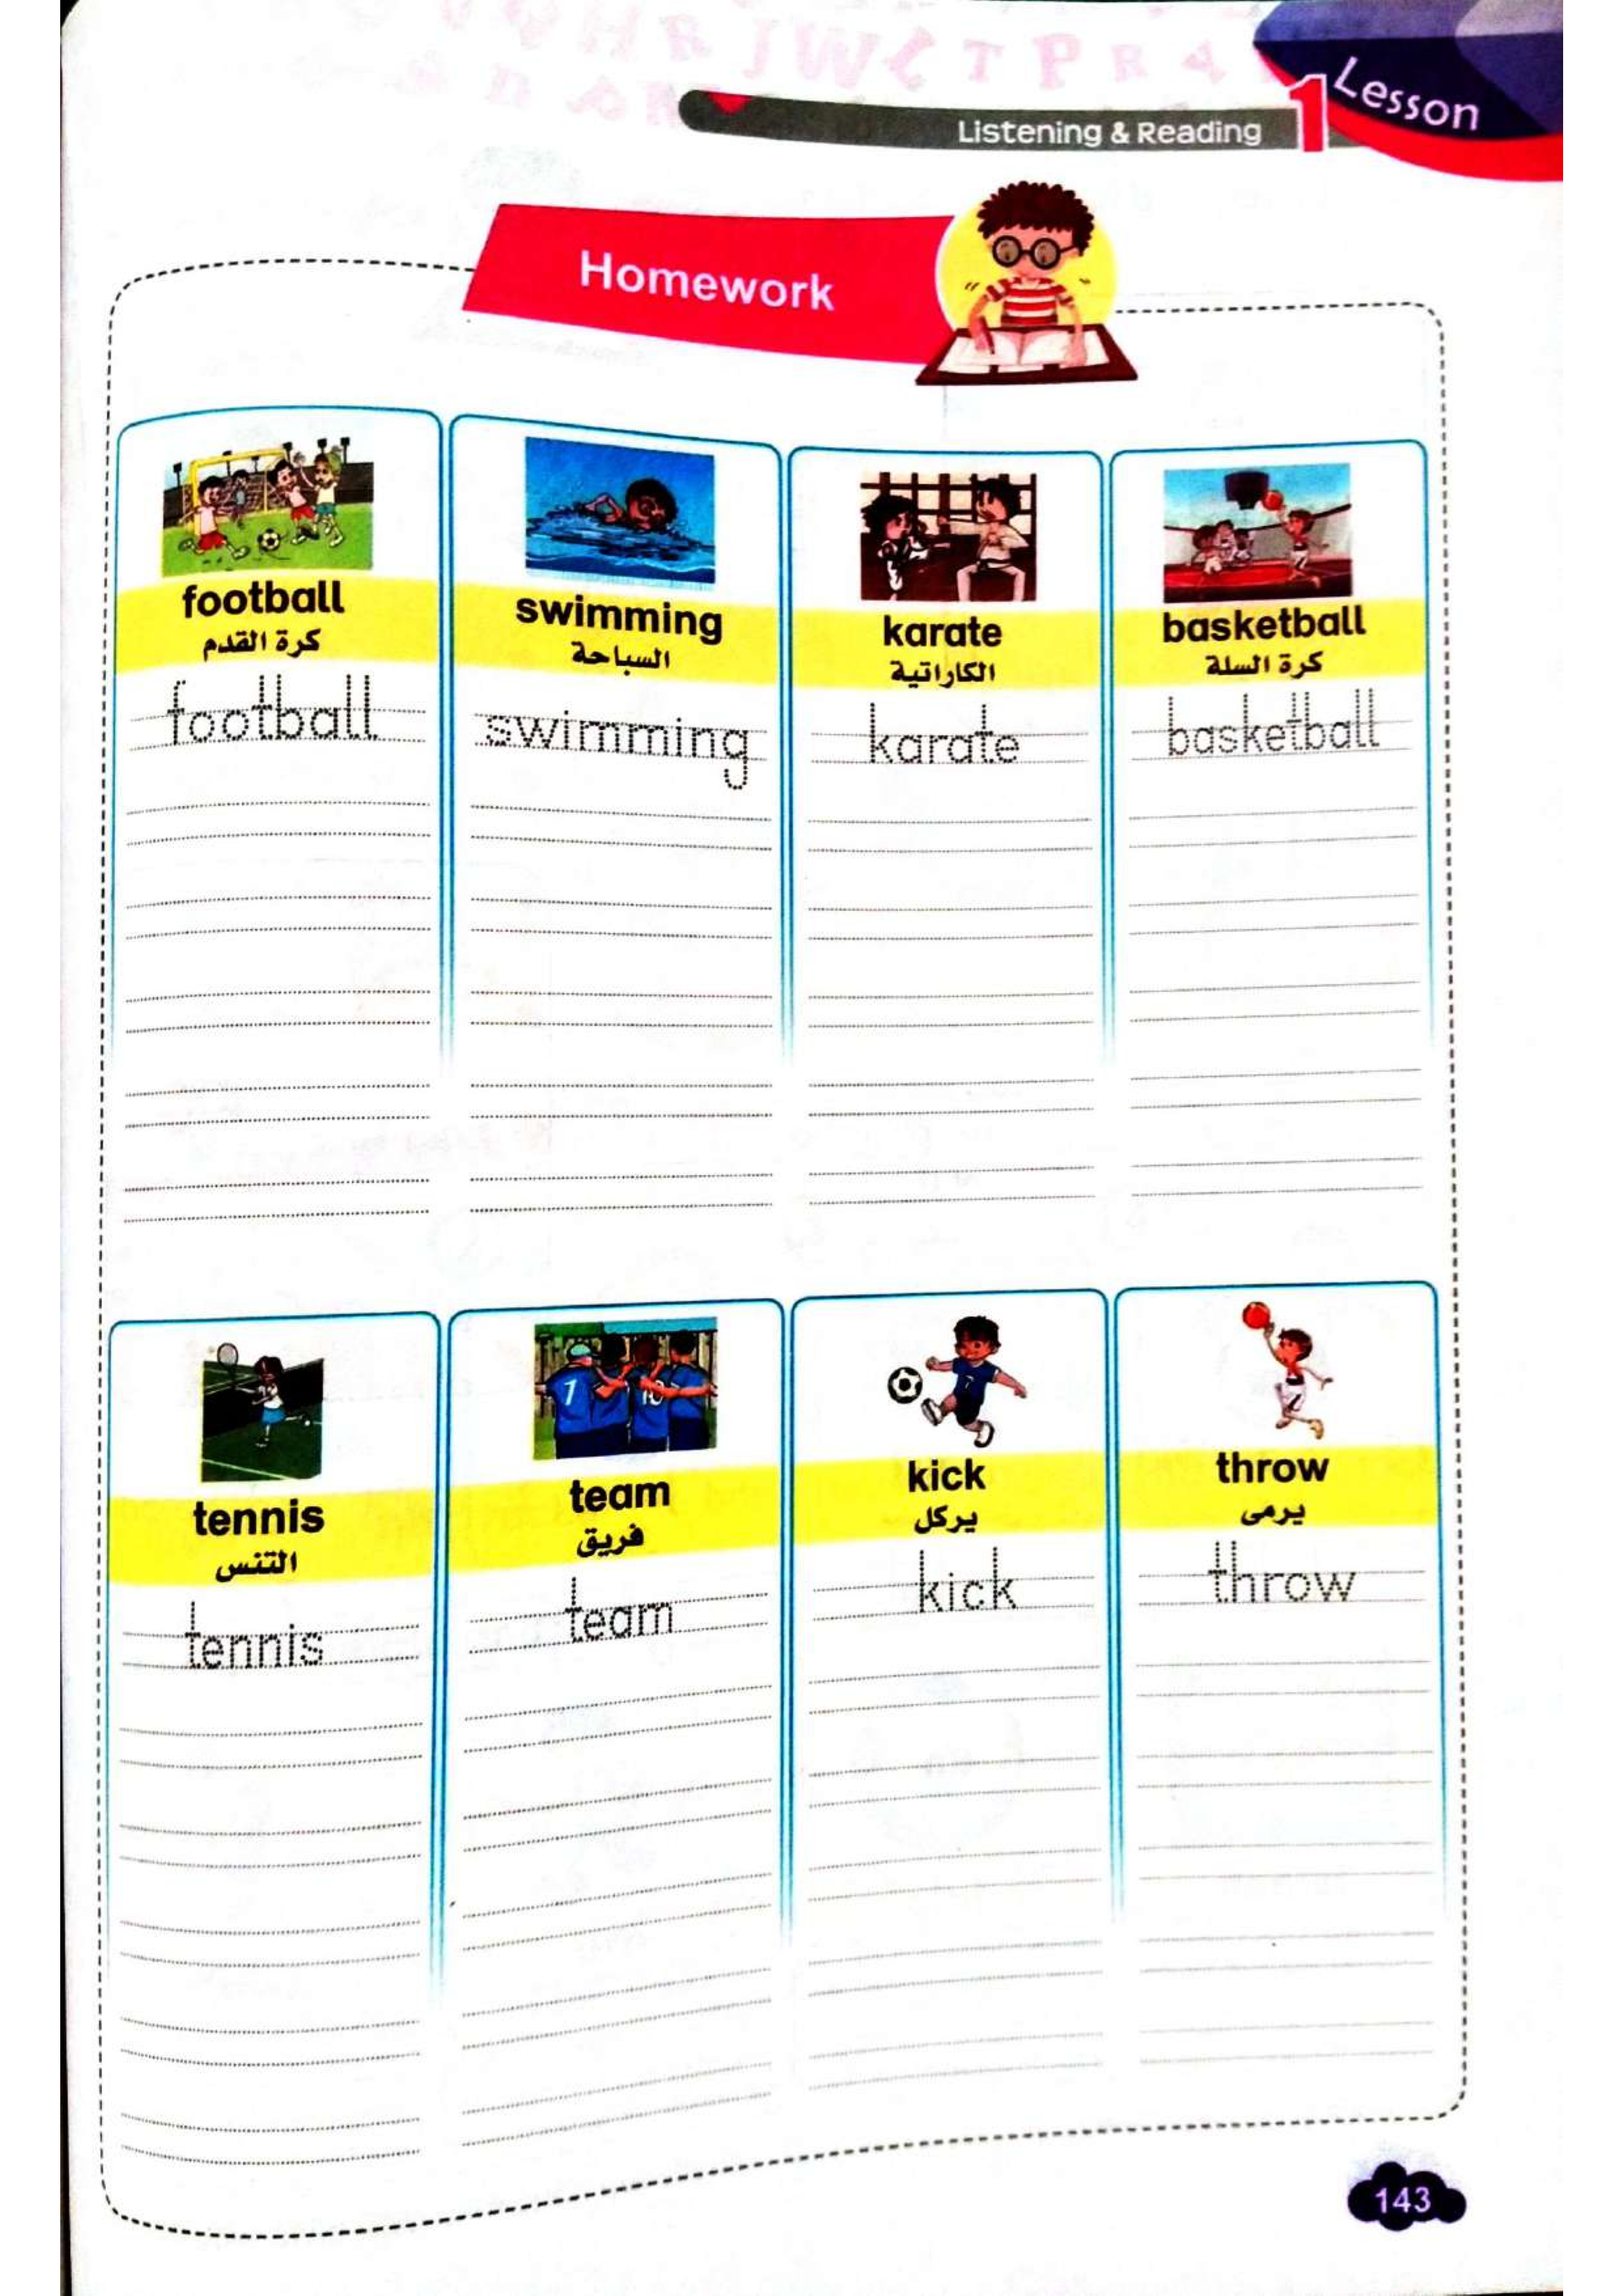 Lesson
Listening & Reading 1
Homework
football
كرة القدم
football
swimming
السباحة
swimming
karate
الكاراتية
karate
basketball
كرة السلة
basketball
tennis
التنس
tennis
team
فريق
team
kick
يركل
kick
throw
يرمى
throw
143